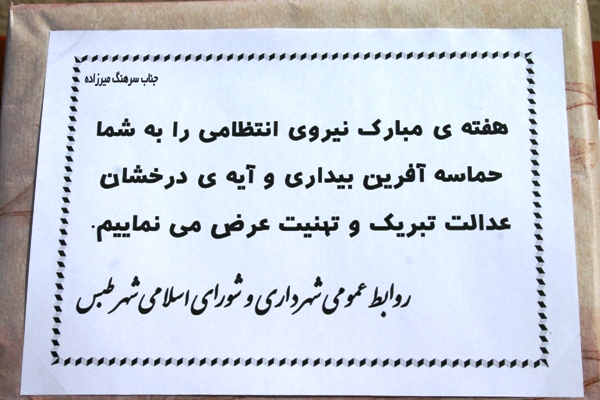 جناب سرهنگ میرزاده
هفته ی مبارک نیروی انتظامی را به شما
حماسه آفرین بیداری و آیه ی درخشان
عدالت تبریک و تهنیت عرض می نماییم.
روابط عمومی شهرداری و شورای اسلامی شهر طبس